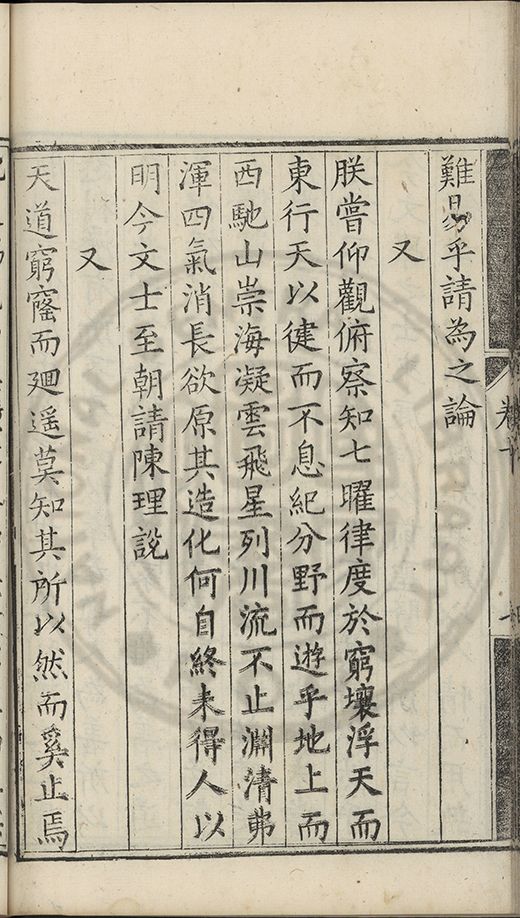 難易乎請為之論
又
朕嘗仰觀俯察知七曜律度於窮壤浮天而
東行天以健而不息紀分野而遊乎地上而
西馳山崇海凝雲飛星列川流不止淵清弗
渾四氣消長欲原其造化何自終未得人以
明今文士至朝請陳理說
又
天道窮窿而廻遥莫知其所以然而奚止焉
卷十